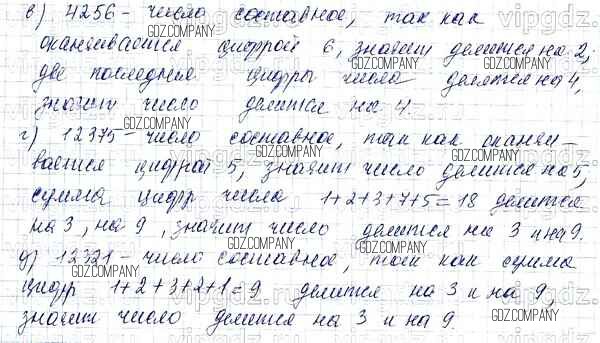 в) 4256 – число составное, так как
оканчивается цифрой 6, значит делится на 2;
две последние цифры числа делятся на 4,
значит число делится на 4.
г) 12375 – число составное, так как оканчи-
вается цифрой 5, значит число делится на 5;
сумма цифр числа 1+2+3+7+5=18 делится
на 3, на 9, значит число делится на 3 и на 9.
д) 12321 – число составное, так как сумма
цифр 1+2+3+2+1=9 делится на 3 и на 9,
значит число делится на 3 и на 9.